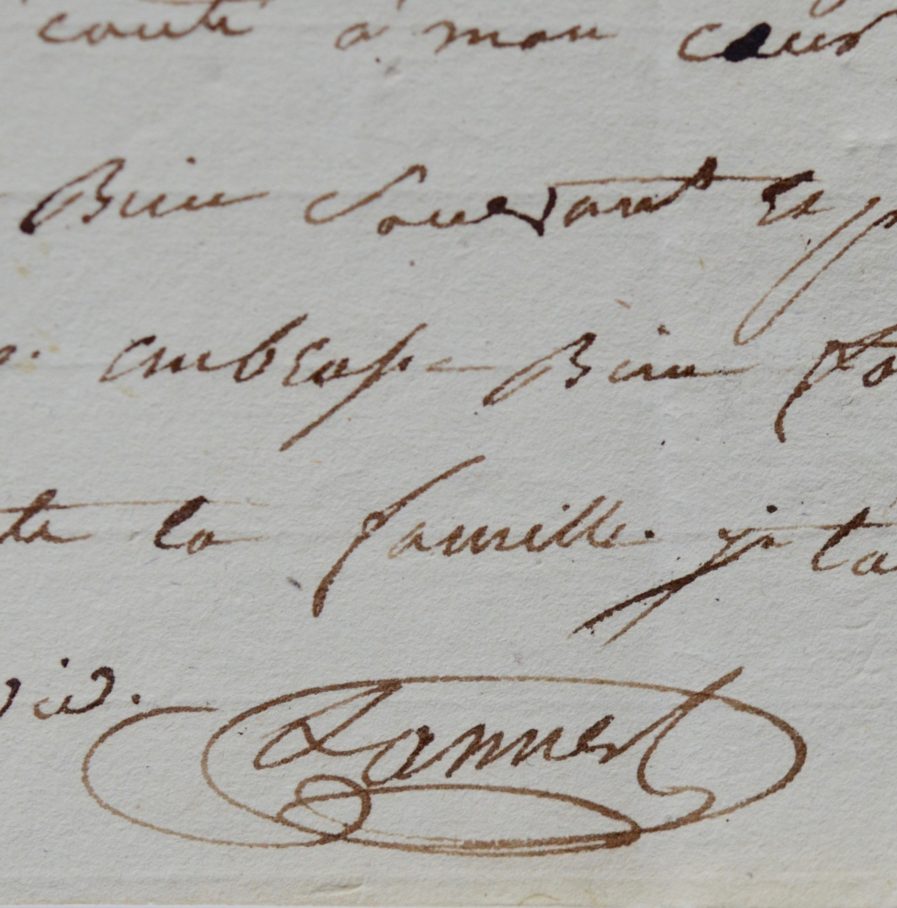 coute a mon coeur
Bien souvant et
embrasse Bien
te la famille. je
vie.
Lannes